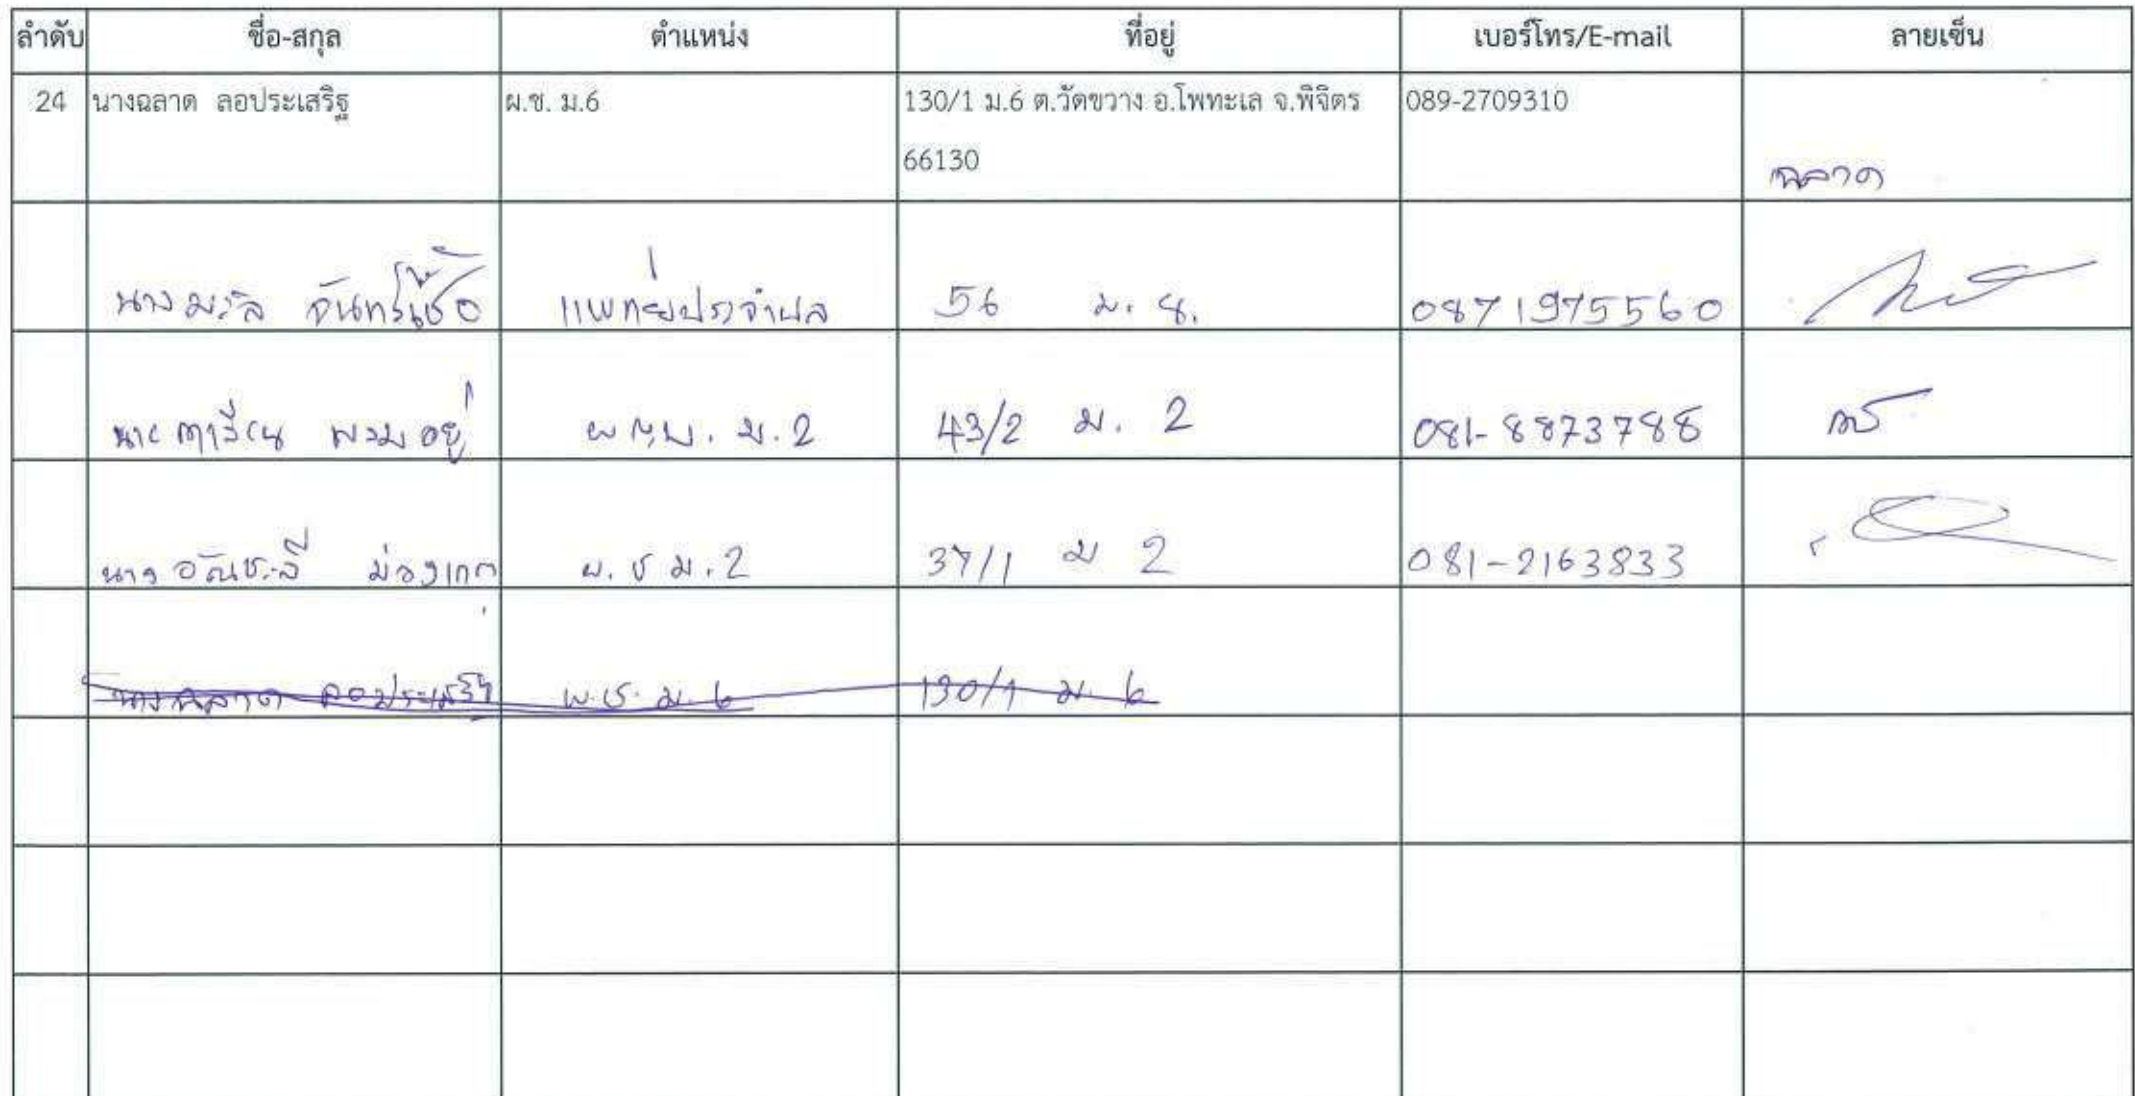 ลำดับ ชื่อ-สกุล ตำแหน่ง ที่อยู่ เบอร์โทร/E-mail ลายเซ็น
24 นางฉลาด ลอประเสริฐ ผ.ช. ม.6 130/1 ม.6 ต.วัดขวาง อ.โพทะเล จ.พิจิตร 089-2709310
66130 ฉลาด
นางมะลิ แพทย์ประจำตำบล 56 0871975560
43/2 ม. 2 081-8873788
นางอัญชะลี ม่วงเกตุ ผ.ช ม.2 37/1 ม 2 081-2163833
นางฉลาด ลอประเสริฐ ผ.ช. ม. 6 130/1 ม. 6